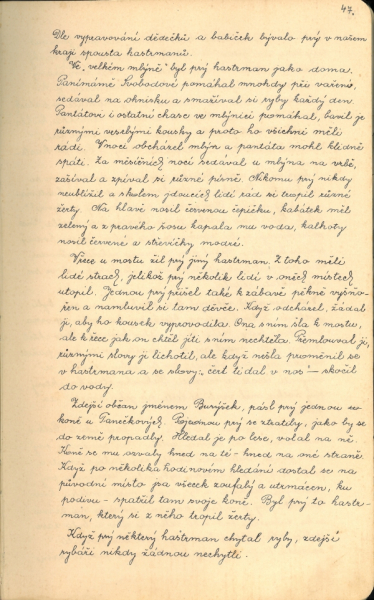 47.
Dle vypravování dědečků a babiček bývalo prý v našem
kraji spousta hastrmanů.
Ve „velkém mlýně" byl prý hastrman jako doma.
Panímámě Svobodové pomáhal mnohdy při vaření,
sedával na ohnisku a smažíval si ryby každý den.
Pantátovi i ostatní chase ve mlýnici pomáhal, bavil je
různými veselými kousky a proto ho všichni měli
rádi. V noci obcházel mlýn a pantáta mohl klidně
spáti. Za měsíčních nocí sedával u mlýna na vrbě,
zašíval a zpíval si různé písně. Nikomu prý nikdy
neublížil a s kolem jdoucích lidí rád si tropil různé
žerty. Na hlavě nosil červenou čepičku, kabátek měl
zelený a z pravého šosu kapala mu voda, kalhoty
nosil červené a střevíčky modré.
V řece u mostu žil prý jiný hastrman. Z toho měli
lidé strach, jelikož prý několik lidí v oněch místech
utopil. Jednou prý přišel také k zábavě pěkně vyšňo-
řen a namluvil si tam děvče. Když odcházel, žádal
ji, aby ho kousek vyprovodila. Ona s ním šla k mostu,
ale k řece jak on chtěl jíti s ním nechtěla. Přemlouval ji,
různými slovy jí lichotil, ale když nešla proměnil se
v hastrmana a se slovy: „čert ti dal v nos" — skočil
do vody.
Zdejší občan jménem Buryšek, pásl prý jednou sv.
koně u Panečkových. Pojednou prý se ztratily, jako by se
do země propadly. Hledal je po lese, volal na ně.
Koně se mu ozvaly hned na té - hned na oné straně.
Když po několika hodinovém hledání dostal se na
původní místo zas všecek zoufalý a utrmácen, ku
podivu - spatřil tam svoje koně. Byl prý to hastr-
man, který si z něho tropil žerty.
Když prý některý hastrman chytal ryby, zdejší
rybáři nikdy žádnou nechytli.